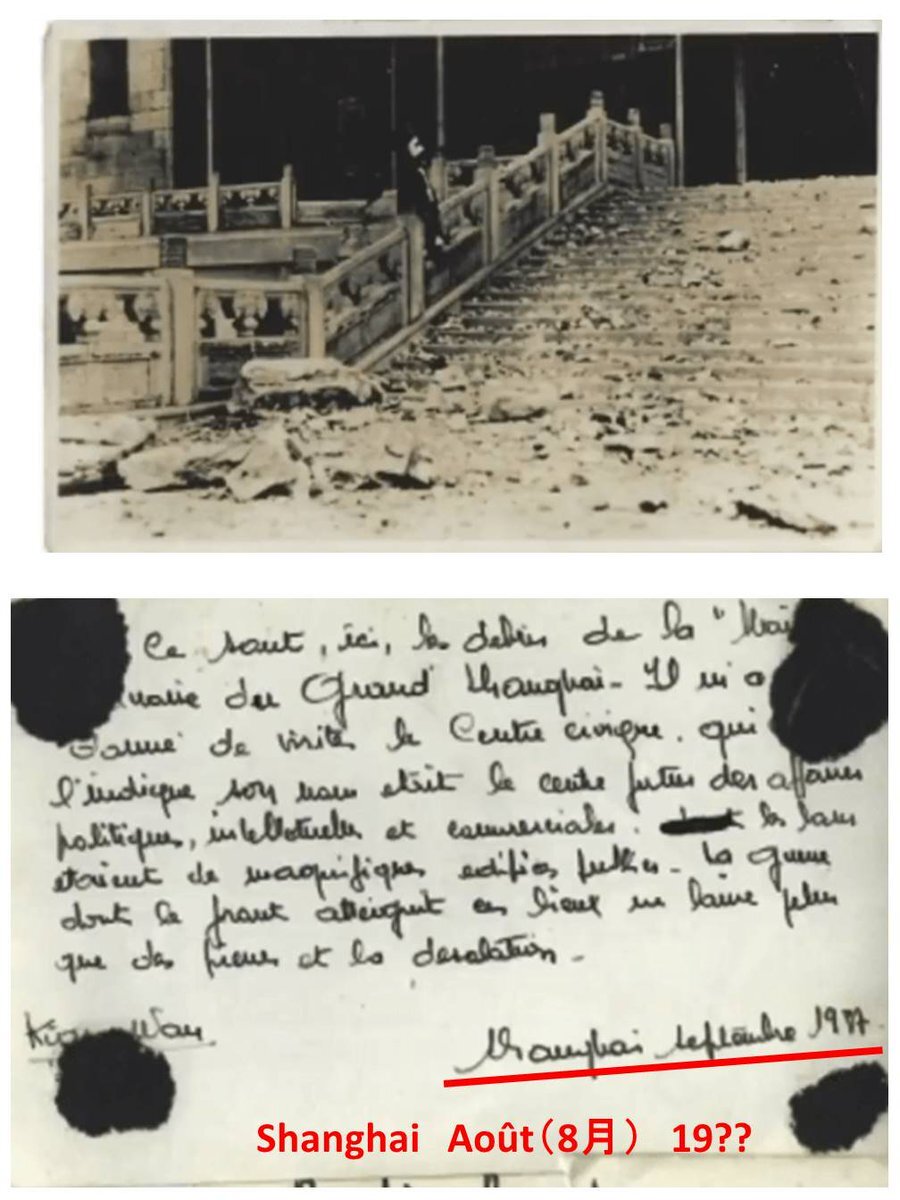 Ce sont, ici, les debris de la "Mai
du Grand Shanghai - Il m'a
donné de visiter le Centre civique. qui
l'indique son nom etait le centre futur des affaires
politiques, intellectuelles et commerciales. les
etaient de magnifiques edifices publics - La guerre
dont le front atteignit ces lieux ne laisse plus
que des ruines et la desolation -
Wan
Shanghai septembre 1937.
Shanghai Août（8月） 19??